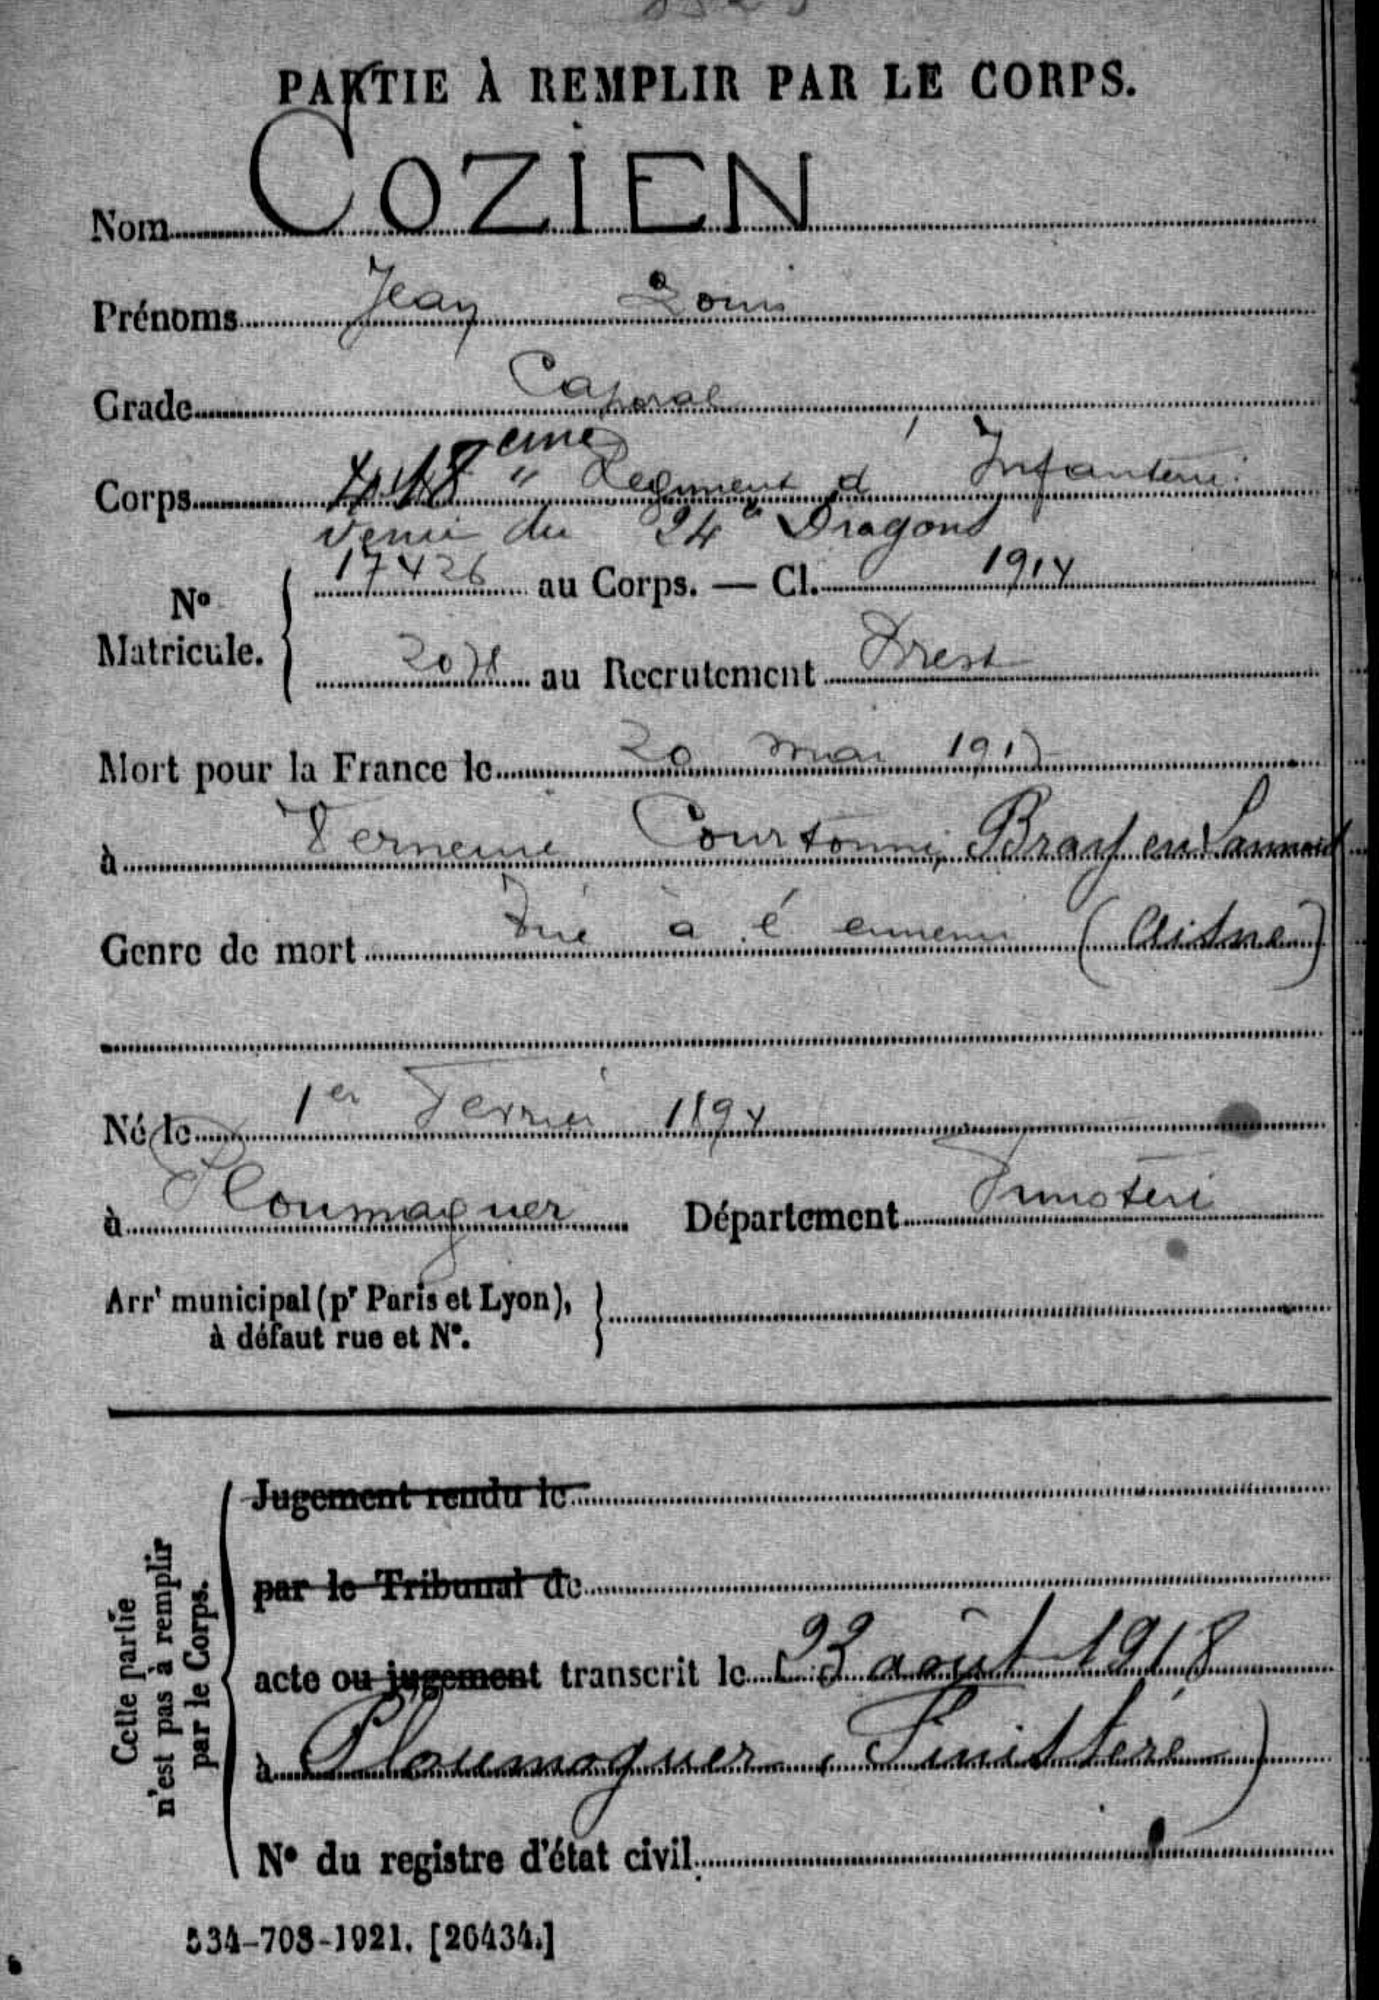 PARTIE À REMPLIR PAR LE CORPS.
Nom COZIEN
Prénoms Jean Louis
Grade Caporal
Corps 418 eme " Regiment d' Infanterie
venu du 24e Dragons
No Matricule. { 17426 au Corps. — Cl. 1914
au Recrutement Brest
Mort pour la France le 20 mai 1917
à Verneuil Courtonne, Bray en Laonnois
Genre de mort Tué à l' ennemi (Aisne)
Né le 1er Fevrier 1894
à Ploumoguer Département Finistère
Arrt municipal (pr Paris et Lyon), }
à défaut rue et No.
Cette partie
n'est pas à remplir
par le Corps.
Jugement rendu le
par le Tribunal de
acte ou jugement transcrit le 23 août 1918
à Ploumoguer (Finistère)
No du registre d'état civil
534-708-1921. [26434.]